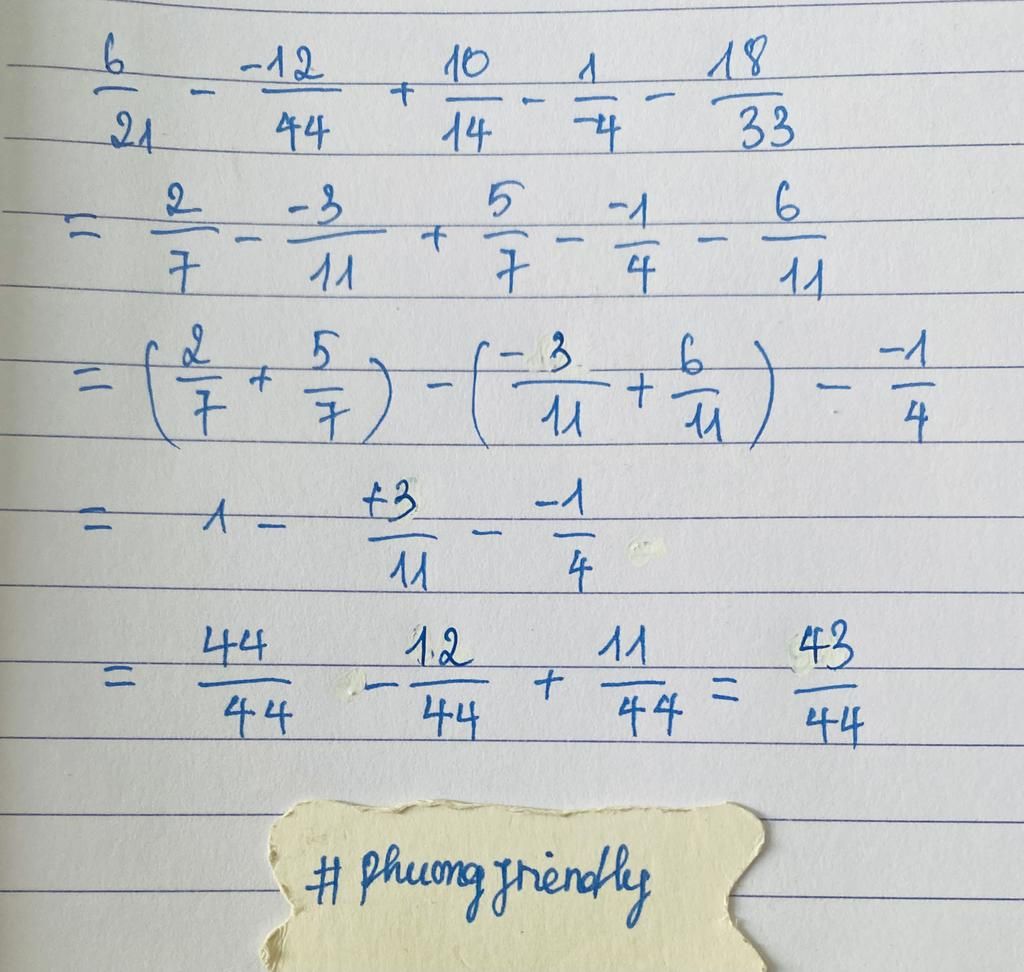 6/21 - -12/44 + 10/14 - 1/-4 - 18/33
= 2/7 - -3/11 + 5/7 - -1/4 - 6/11
= (2/7 + 5/7) - (-3/11 + 6/11) - -1/4
= 1 - +3/11 - -1/4
= 44/44 - 12/44 + 11/44 = 43/44
# phuong friendly